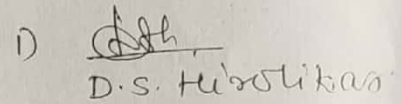 1)
D.S. Hirolikar